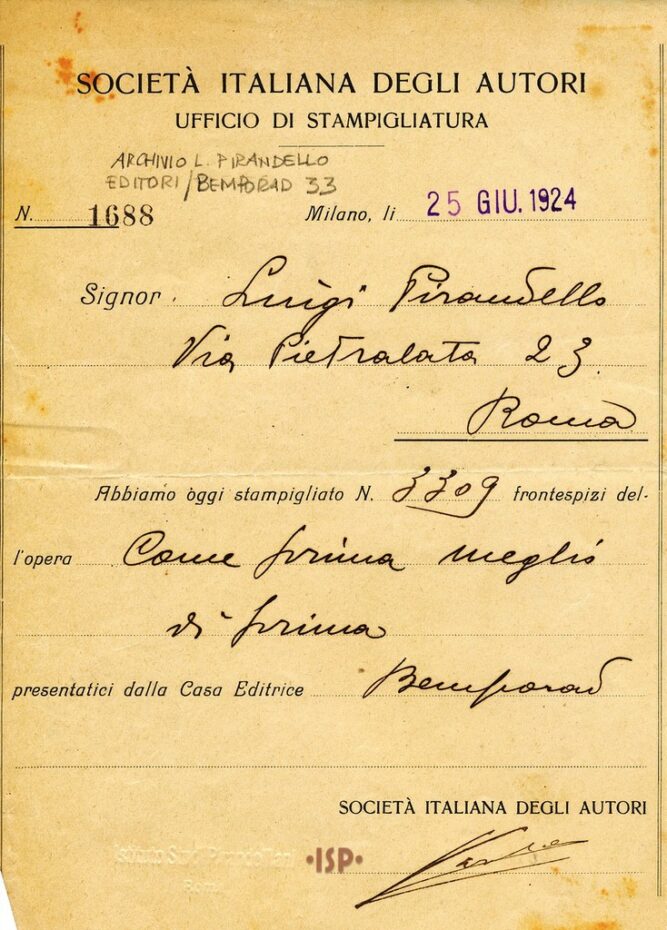 SOCIETÀ ITALIANA DEGLI AUTORI
UFFICIO DI STAMPIGLIATURA
ARCHIVIO L. PIRANDELLO
EDITORI / BEMPORAD 33
N. 1688 Milano, li 25 GIU. 1924
Signor Luigi Pirandello
Via Pietralata 23
Roma
Abbiamo oggi stampigliato N. 3309 frontespizi del-
l'opera Come prima meglio
di prima
presentatici dalla Casa Editrice Bemporad
SOCIETÀ ITALIANA DEGLI AUTORI
Istituto Studi Pirandelliani
•ISP•
Roma